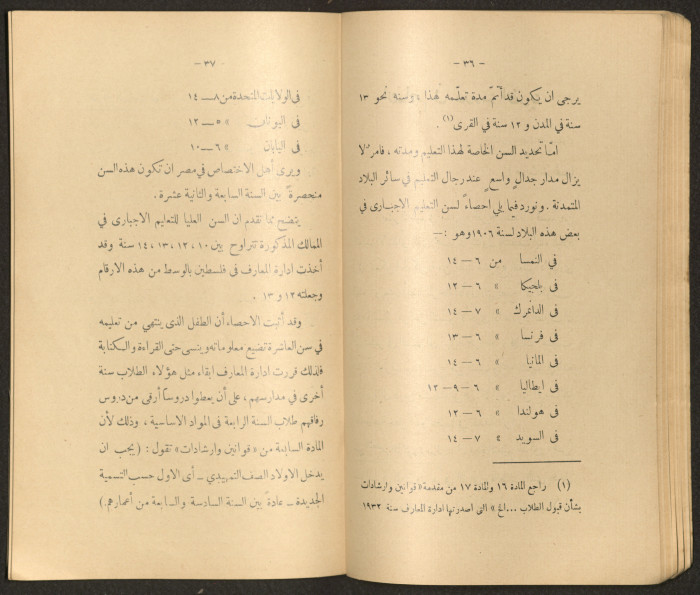 — ٣٦ —
يرجى ان يكون قد أتمّ مدة تعلّمه لهذا ، وسنه نحو ١٣
سنة في المدن و ١٢ سنة في القرى(١) .
امّا تحديد السن الخاصة لهذا التعليم ومدته ، فامر لا
يزال مدار جدالٍ واسعٍ عند رجال التعليم في سائر البلاد
المتمدنة . ونورد فيما يلي احصاءً لسن التعليم الاجباري في
بعض هذه البلاد لسنة ١٩٠٦ وهو :—
في النمسا من ٦ — ١٤
في بلجيكا » ٦ — ١٢
في الدانمرك » ٧ — ١٤
في فرنسا » ٦ — ١٣
في المانيا » ٦ — ١٤
في ايطاليا » ٦ — ٩ — ١٢
في هولندا » ٦ — ١٣
في السويد » ٧ — ١٤
(١) راجع المادة ١٦ والمادة ١٧ من مقدمة « قوانين وارشادات
بشأن قبول الطلاب ... الخ » التى اصدرتها ادارة المعارف سنة ١٩٣٢
— ٣٧ —
فى الولايات المتحدة من ٨ — ١٤
فى اليونان » ٥ — ١٢
فى اليابان » ٦ — ١٠
ويرى أهل الاختصاص في مصر ان تكون هذه السن
منحصرةً بين السنة السابعة والثانية عشرة .
يتضح مما تقدم ان السن العليا للتعليم الاجباري في
الممالك المذكورة تتراوح بين ١٠ ، ١٢ ، ١٣ ، ١٤ سنة وقد
أخذت ادارة المعارف فى فلسطين بالوسط من هذه الارقام
وجعلته ١٢ و ١٣ .
وقد أثبت الاحصاء أن الطفل الذى ينتهي من تعليمه
في سن العاشرة تضيع معلوماته وينسى حتى القراءة والكتابة
فلذلك قررت ادارة المعارف ابقاء مثل هؤلاء الطلاب سنة
أخرى في مدارسهم ، على أن يعطوا دروساً أرقى من دروس
رفاقهم طلاب السنة الرابعة فى المواد الاساسية ، وذلك لأن
المادة السابعة من « قوانين وارشادات » تقول : (يجب ان
يدخل الاولاد الصف التمهيدي — أى الاول حسب التسمية
الجديدة — عادةً بين السنة السادسة والسابعة من أعمارهم .)